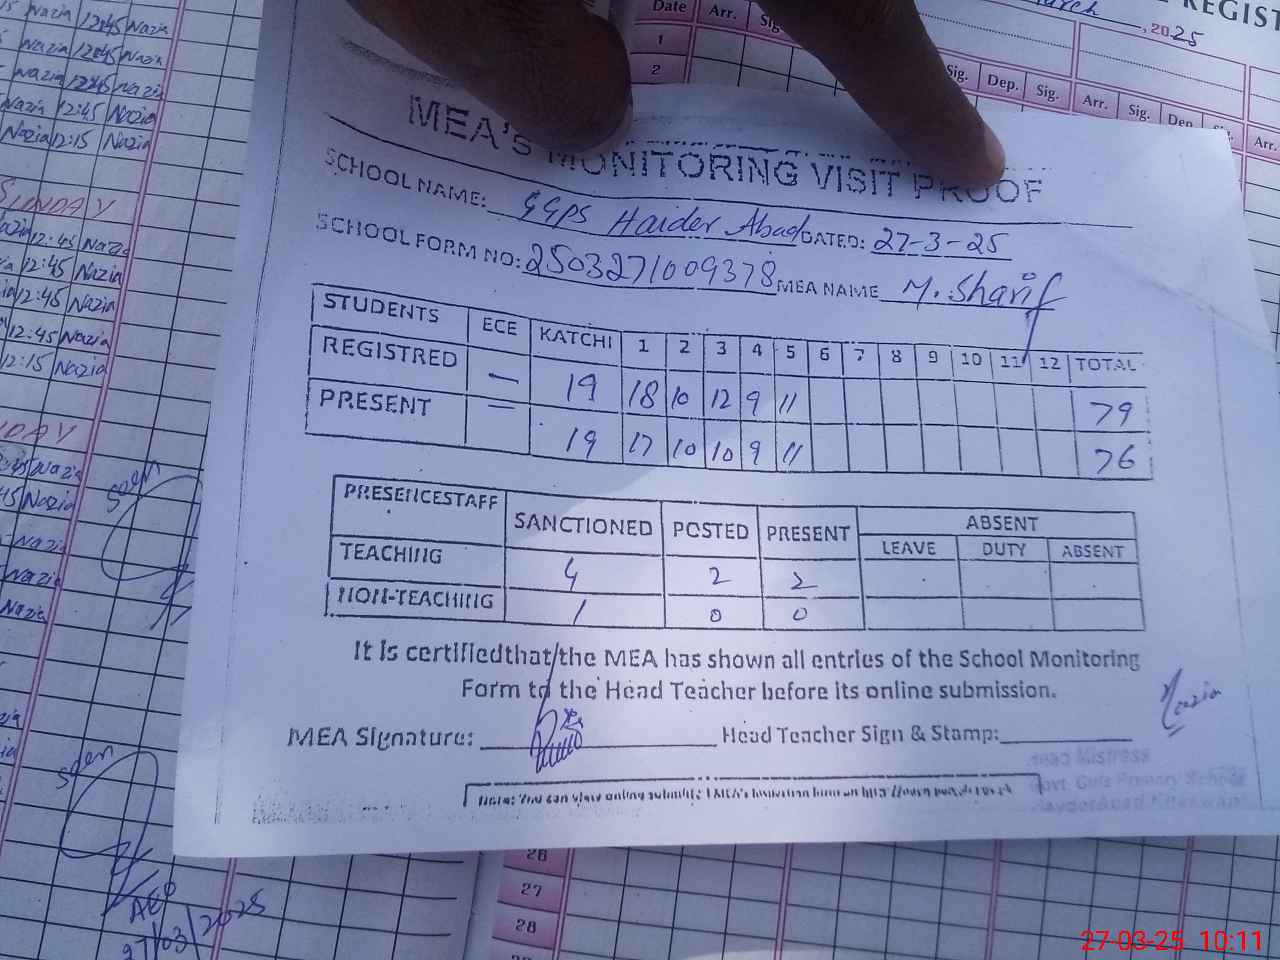 Nazia 12:45 Nazia
Nazia 12:45 Nazia
Nazia 12:45 Nazia
Nazia 12:45 Nazia
Nazia 12:15 Nazia
SUNDAY
Nazia 12:45 Nazia
12:45 Nazia
12:45 Nazia
12:45 Nazia
12:15 Nazia
Nazia
45 Nazia
Nazia
Nazia
Nazia
seen
seen
AEO
27/03/2025
Date Arr.
1
2
2025
REGIST
Sig. Dep. Sig. Arr. Sig. Dep. Arr.
MEA'S MONITORING VISIT PROOF
SCHOOL NAME: GGPS Haider Abad DATED: 27-3-25
SCHOOL FORM NO: 2503271009378 MEA NAME M. Sharif
STUDENTS ECE KATCHI 1 2 3 4 5 6 7 8 9 10 11 12 TOTAL
REGISTRED — 19 18 10 12 9 11 79
PRESENT — 19 17 10 10 9 11 76
PRESENCESTAFF SANCTIONED POSTED PRESENT ABSENT
LEAVE DUTY ABSENT
TEACHING 4 2 2
NON-TEACHING 1 0 0
It is certifiedthat the MEA has shown all entries of the School Monitoring
Form to the Head Teacher before its online submission.
MEA Signature: Head Teacher Sign & Stamp: Nazia
Head Mistress
Govt. Girls Primary School
26
27
28
27-03-25 10:11